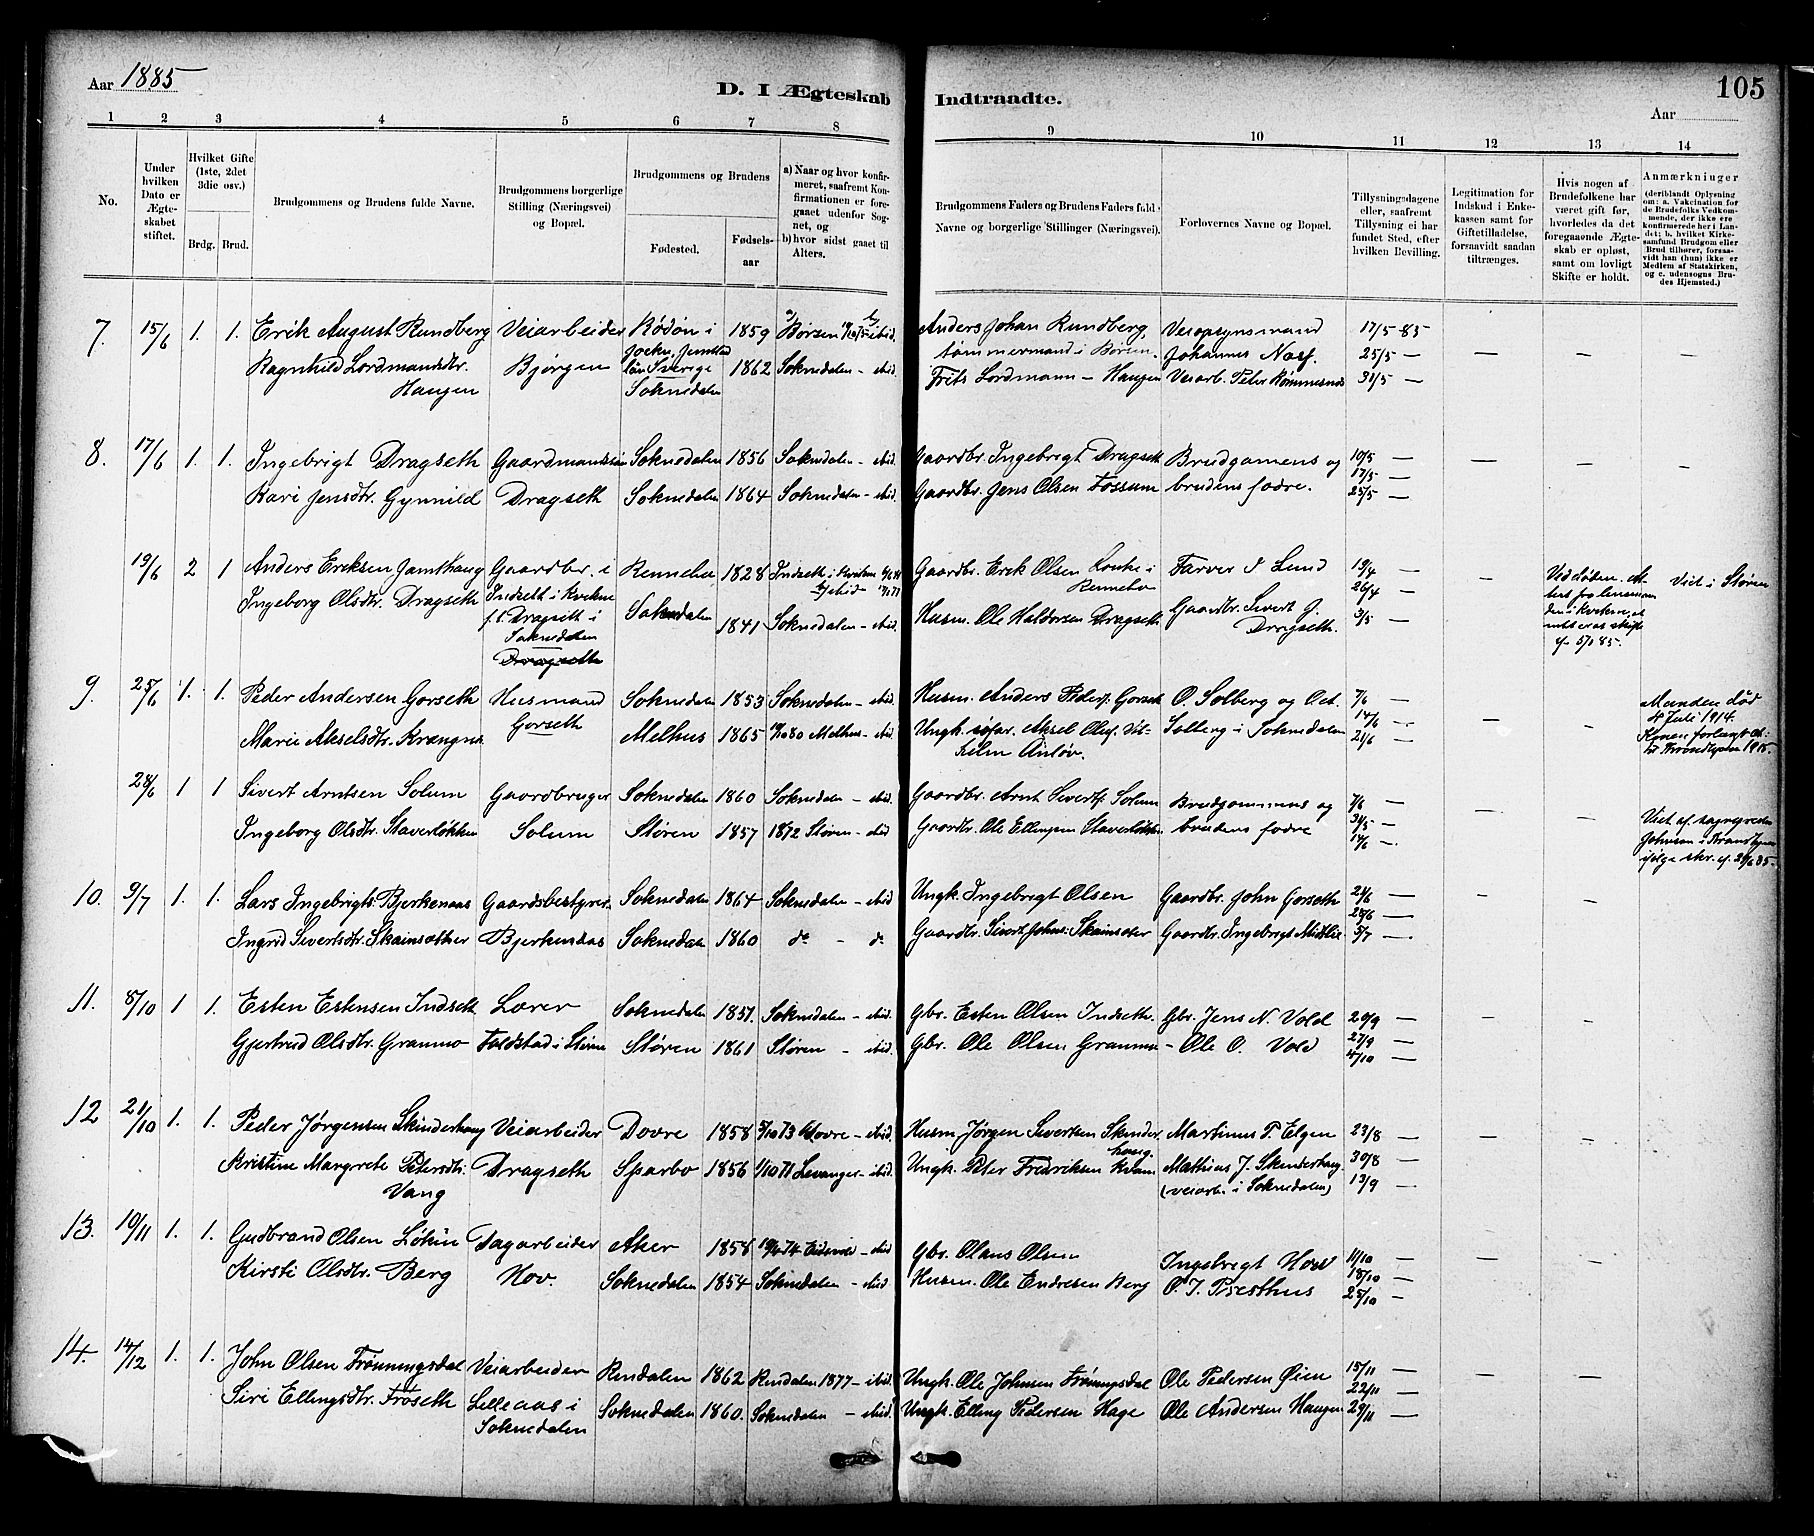 Aar 1885
D. I Ægteskab Indtraadte.
105
Aar
1 2 3 4 5 6 7 8 9 10 11 12 13 14
No.
Under hvilken Dato er Ægteskabet stiftet.
Hvilket Gifte (1ste, 2det 3die osv.)
Brdg. Brud.
Brudgommens og Brudens fulde Navne.
Brudgommens borgerlige Stilling (Næringsvei) og Bopæl.
Brudgommens og Brudens
Fødested. Fødselsaar
a) Naar og hvor konfirmeret, saafremt Konfirmationen er foregaaet udenfor Sognet, og
b) hvor sidst gaaet til Alters.
Brudgommens Faders og Brudens Faders fulde Navne og borgerlige Stillinger (Næringsvei).
Forlovernes Navne og Bopæl.
Tillysningsdagene eller, saafremt Tillysning ei har fundet Sted, efter hvilken Bevilling.
Legitimation for Indskud i Enkekassen samt for Giftetilladelse, forsaavidt saadan tiltrænges.
Hvis nogen af Brudefolkene har været gift før, hvorledes da det foregaaende Ægteskab er opløst, samt om lovligt Skifte er holdt.
Anmærkninger
(deriblandt Oplysning om: a. Vakcination for de Brudefolks Vedkommende, der ikke ere konfirmerede her i Landet; b. hvilket Kirkesamfund Brudgom eller Brud tilhører, forsaavidt han (hun) ikke er Medlem af Statskirken, og c. udensogns Brudes Hjemsted.)
7. 15/6 1. 1. Erik August Rundberg Veiarbeider Rödön i 1859 a) Børsen ibid. Anders Johan Rundberg, Veiopsynsmand 17/5-85
Jockn, Jemtland tømmermand i Børsen. Johannes Næss. 25/5 —
Ragnhild Lordmandsdtr. Bjørgen län Sverige 1862 Soknedalen - ibid. Frits Lordmann - Haugen Veiarb. Peter Rommesmo 31/5 —
Haugen Soknedalen
8. 17/6 1. 1. Ingebrigt Dragseth Gaardmandssøn Soknedalen 1856 Soknedalen - ibid. Gaardbr. Ingebrigt Dragseth Brudgomens og 10/5 —
17/5 —
Kari Jensdtr. Gynnild Dragseth Soknedalen 1864 Soknedalen - ibid. Gaardbr. Jens Olsen Fossum brudens fædre. 25/5 —
19/6 2 1 Anders Eriksen Jamthaug Gaardbr. i Rennebu 1828 Indseth i Gaardbr. Erik Olsen i Farver I Lund 19/4 —
Ingeborg Olsdtr. Dragseth Indseth i Kvikne Rennebo 26/4 —
f. t. Dragseth i Soknedalen 1841 Soknedalen - ibid. Husm. Ole Haldorsen Dragseth Gaardbr. Sivert J. 3/5 —
Soknedalen Dragseth.
Dragseth
Viet i Støren
9. 25/6 1. 1. Peder Andersen Gorseth Husmand Soknedalen 1853 Soknedalen - ibid. Husm. Anders Peders. Gorseth O. Solberg og Oct. 7/6 —
Gorseth 14/6 —
Marie Akselsdtr. Krængnes Melhus 1865 Melhus - ibid. Ungk. søfar. Aksel Oluf Vil- Solberg i Soknedalen 21/6 —
helm Anløv.
Manden død
Juli 1914.
28/6 1 1 Sivert Arntsen Solum Gaardbruger Soknedalen 1860 Soknedalen - ibid. Gaardbr. Arnt Siverts. Solum Brudgommens og 7/6 —
31/5 —
Ingeborg Olsdtr. Staverløkken Solum Støren 1857 1872 Støren - ibid Gaardbr. Ole Ellingsen Staverløkken brudens fædre 14/6 —
Viet af sognepresten
10. 9/7 1. 1. Lars Ingebrigts. Bjerkenaas Gaardsbestyrer Soknedalen 1864 Soknedalen - ibid Ungk. Ingebrigt Olsen Gaardbr. John Gorseth 21/6 —
28/6 —
Ingrid Sivertsdtr. Skainsæther Bjerkenaas Soknedalen 1860 do - do Gaardbr. Sivert Johns. Skainsæter Gaardbr. Ingebrigt Midtlie 5/7 —
11. 8/10 1 1. Esten Estensen Indseth Lærer Soknedalen 1857. Soknedalen - ibid. Gbr. Esten Olsen Indseth. Gbr. Jens N. Vold 20/9 —
27/9 —
Gjertrud Olsdtr. Grammo Foldstad i Støren Støren 1861 Støren - ibid. Gbr. Ole Olsen Grammo - Ole O. Vold 4/10 —
12 21/10 1. 1. Peder Jørgensen Skinderhaug Veiarbeider Dovre 1858 Dovre - ibid. Husm Jørgen Sivertsen Skinder- Martinus T. Elgen 23/8 —
haug.
Kristine Margrete Petersdtr: Dragseth Sparbo 1856 Levanger - ibid. Ungk. Peter Fredriksen Kvam Mathias J. Skinderhaug 30/8 —
Vang (veiarb. i Soknedalen) 13/9 —
13. 10/11 1. 1. Gudbrand Olsen Løken Dagarbeider Aker 1858 Eidsvold - ibid Gbr. Olaus Olsen Ingebrigt Hov 11/10 —
18/10 —
Kirsti Olsdtr. Berg Hov. Soknedalen 1854 Soknedalen - ibid. Husm. Ole Endresen Berg O. J. Præsthus 25/10 —
14. 14/12 1. 1. John Olsen Trønningsdal Veiarbeider Rendalen 1862 Rendalen 1877 - ibid. Ungk. Ole Johnsen Trønningsdal Ole Pedersen Øien 15/11 —
22/11 —
Siri Ellingsdtr. Frøseth Lilleaas i Soknedalen 1860. Soknedalen - ibid. Ungk. Elling Pedersen Hage Ole Andersen Haugen 29/11 —
Soknedalen